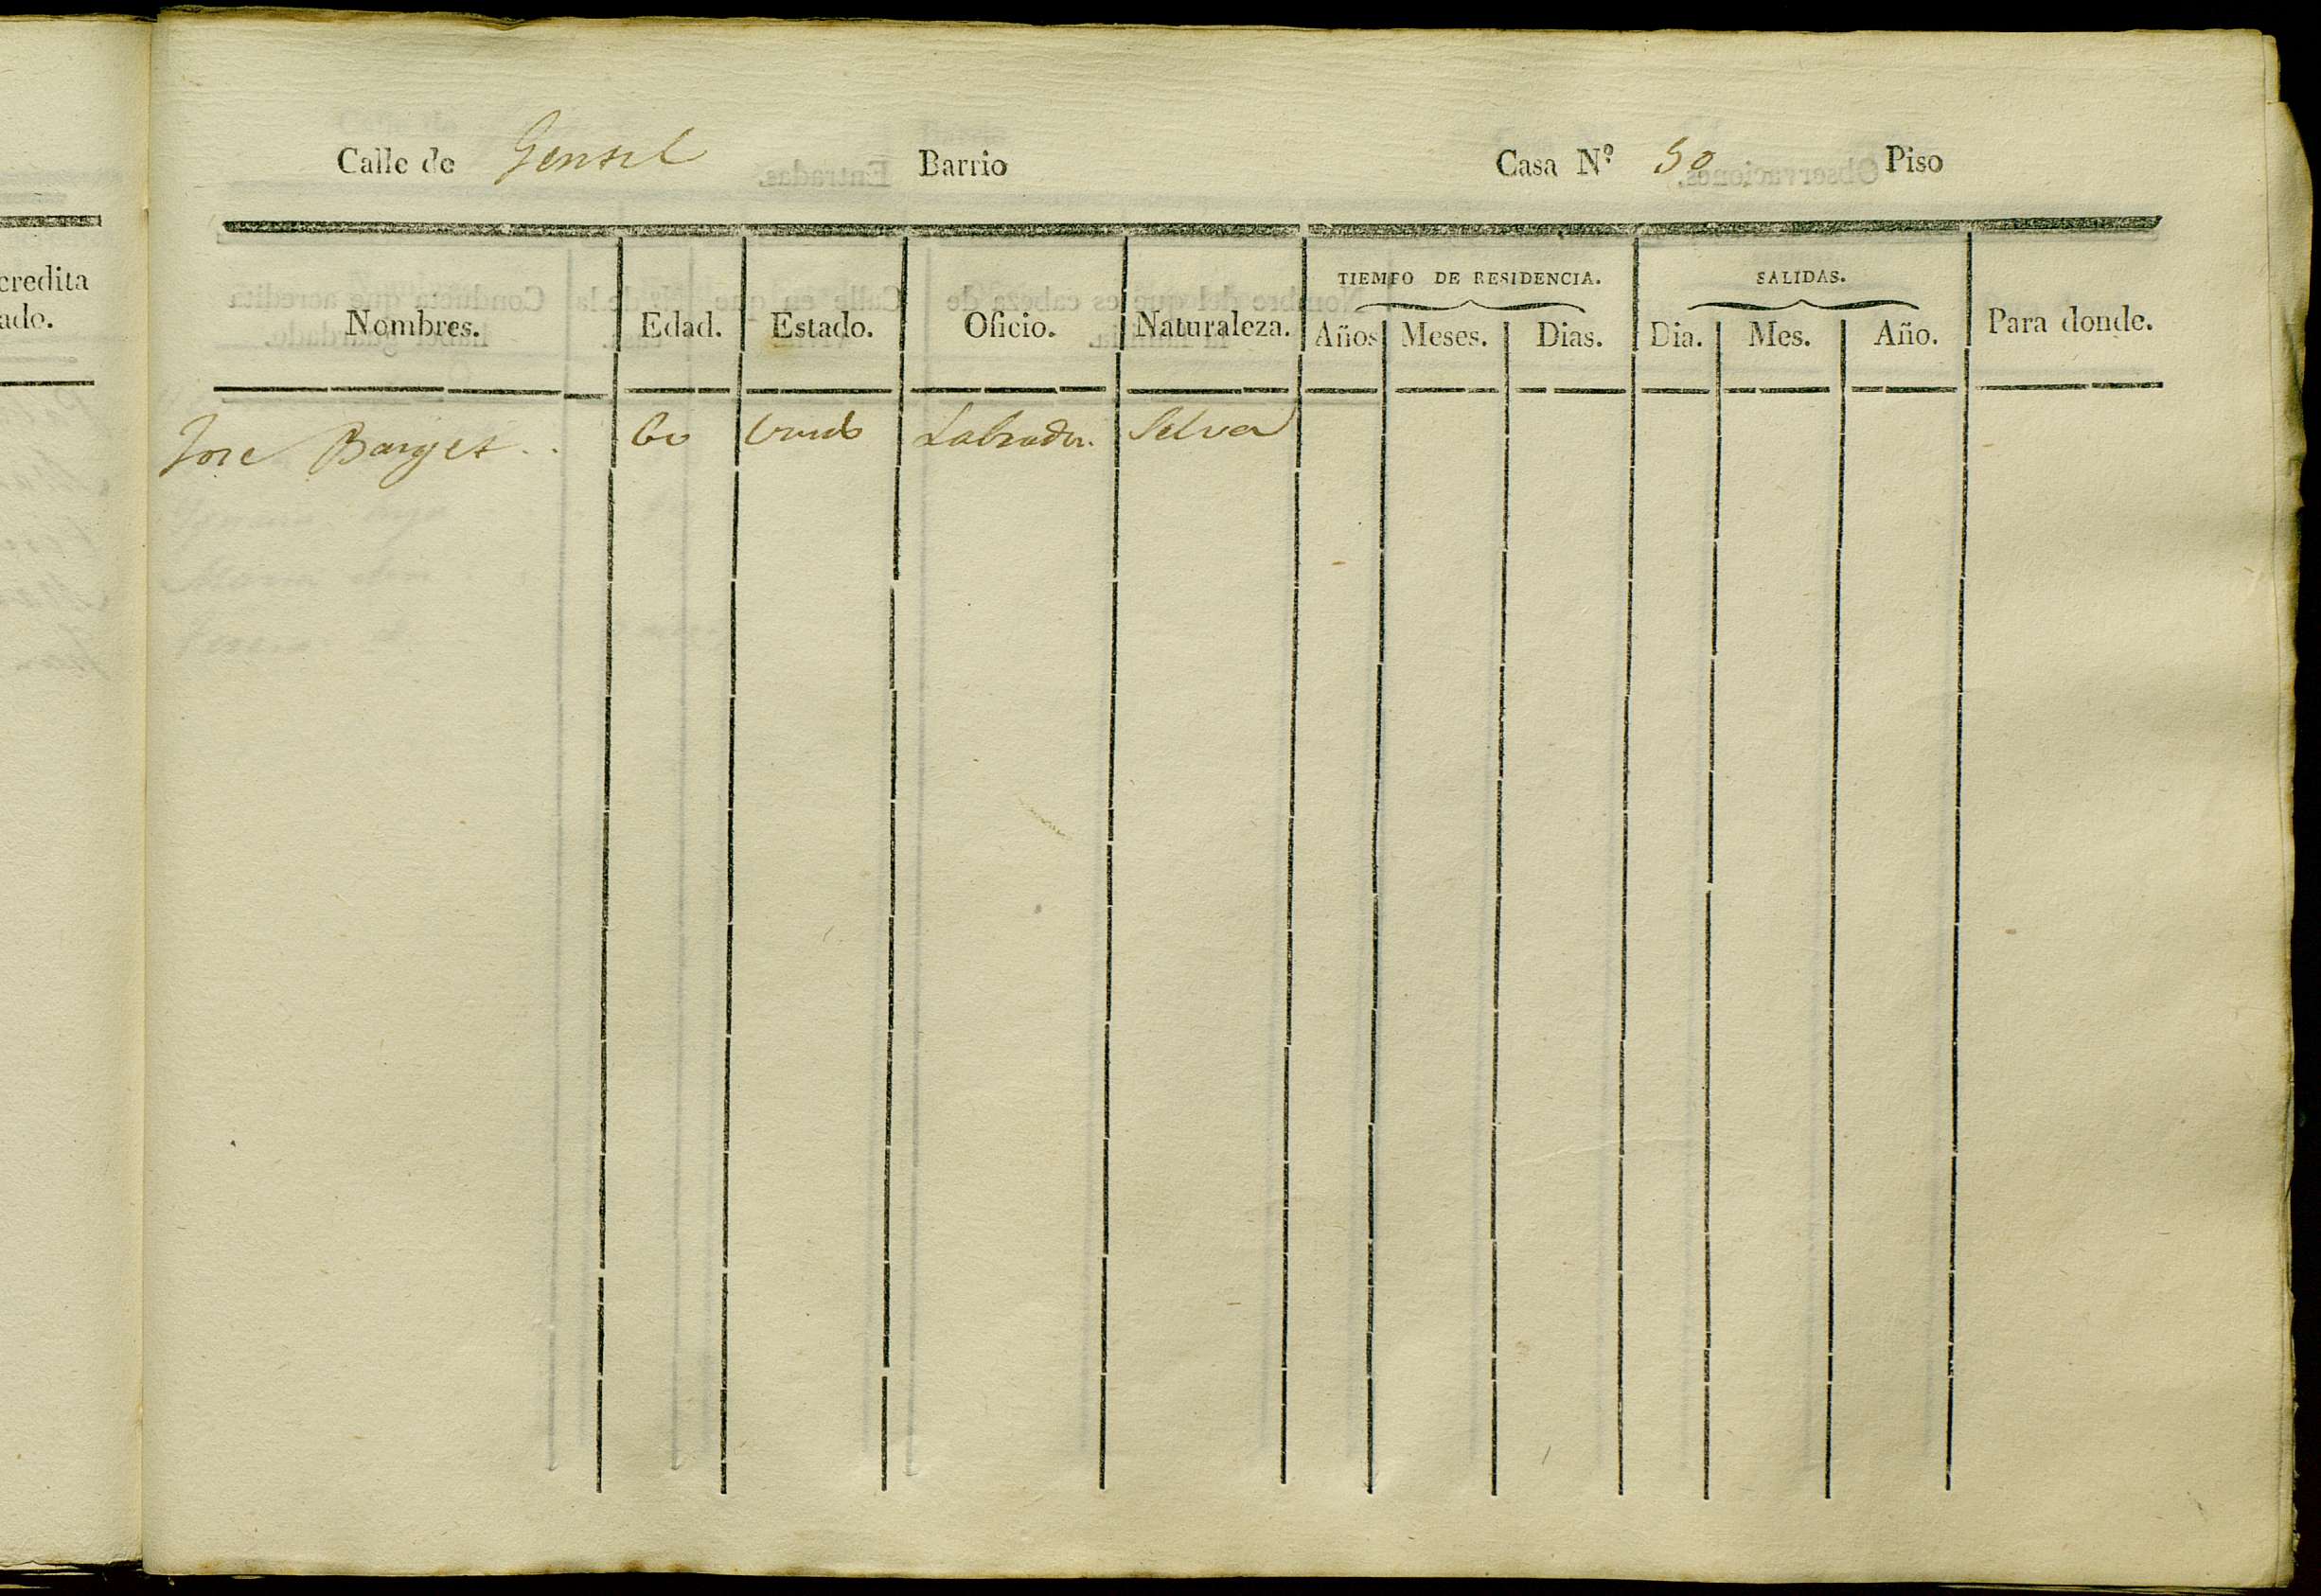 credita
ado.
Calle de Gensel Barrio Casa Nº 50 Piso
TIEMPO DE RESIDENCIA. SALIDAS.
Nombres. Edad. Estado. Oficio. Naturaleza. Años Meses. Dias. Dia. Mes. Año. Para donde.
Jose Barges.. 60 Labrador. Selva